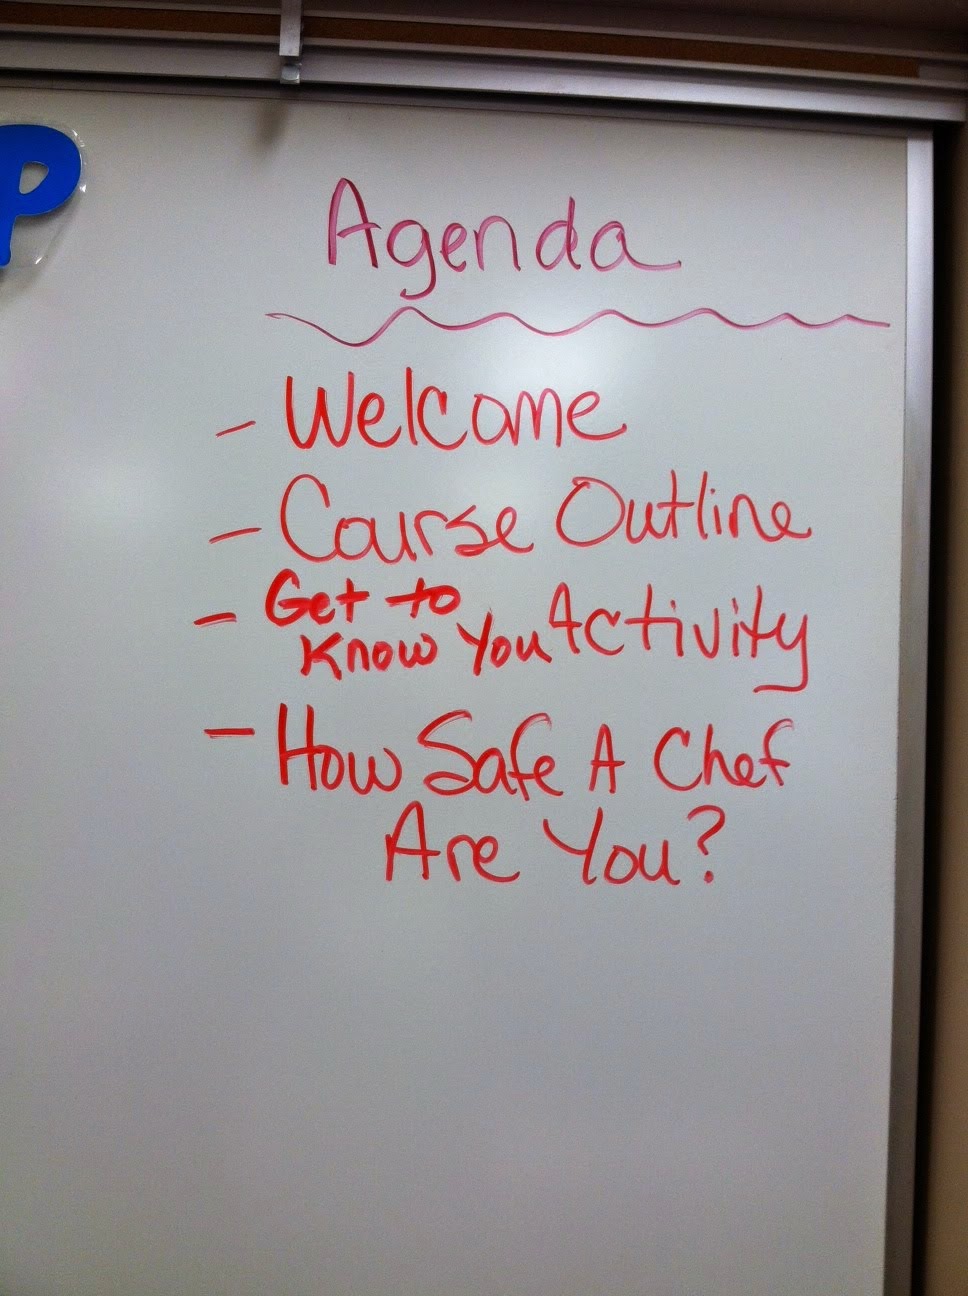 P
Agenda
- Welcome
- Course Outline
- Get to
Know You Activity
- How Safe A Chef
Are You?